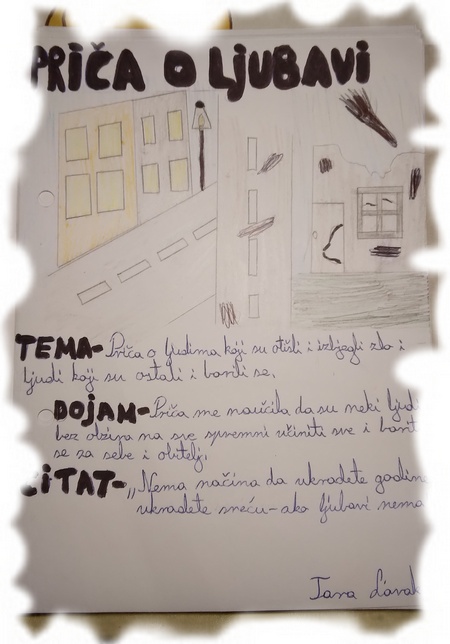 PRIČA O LJUBAVI
TEMA- Priča o ljudima koji su otišli i izbjegli zlo i
ljudi koji su ostali i borili se.
DOJAM- Priča me naučila da su neki ljudi
bez obzira na sve spremni učiniti sve i borit
se za sebe i obitelj.
CITAT- „Nema načina da ukradete godine
ukradete sreću- ako ljubavi nema
Tara